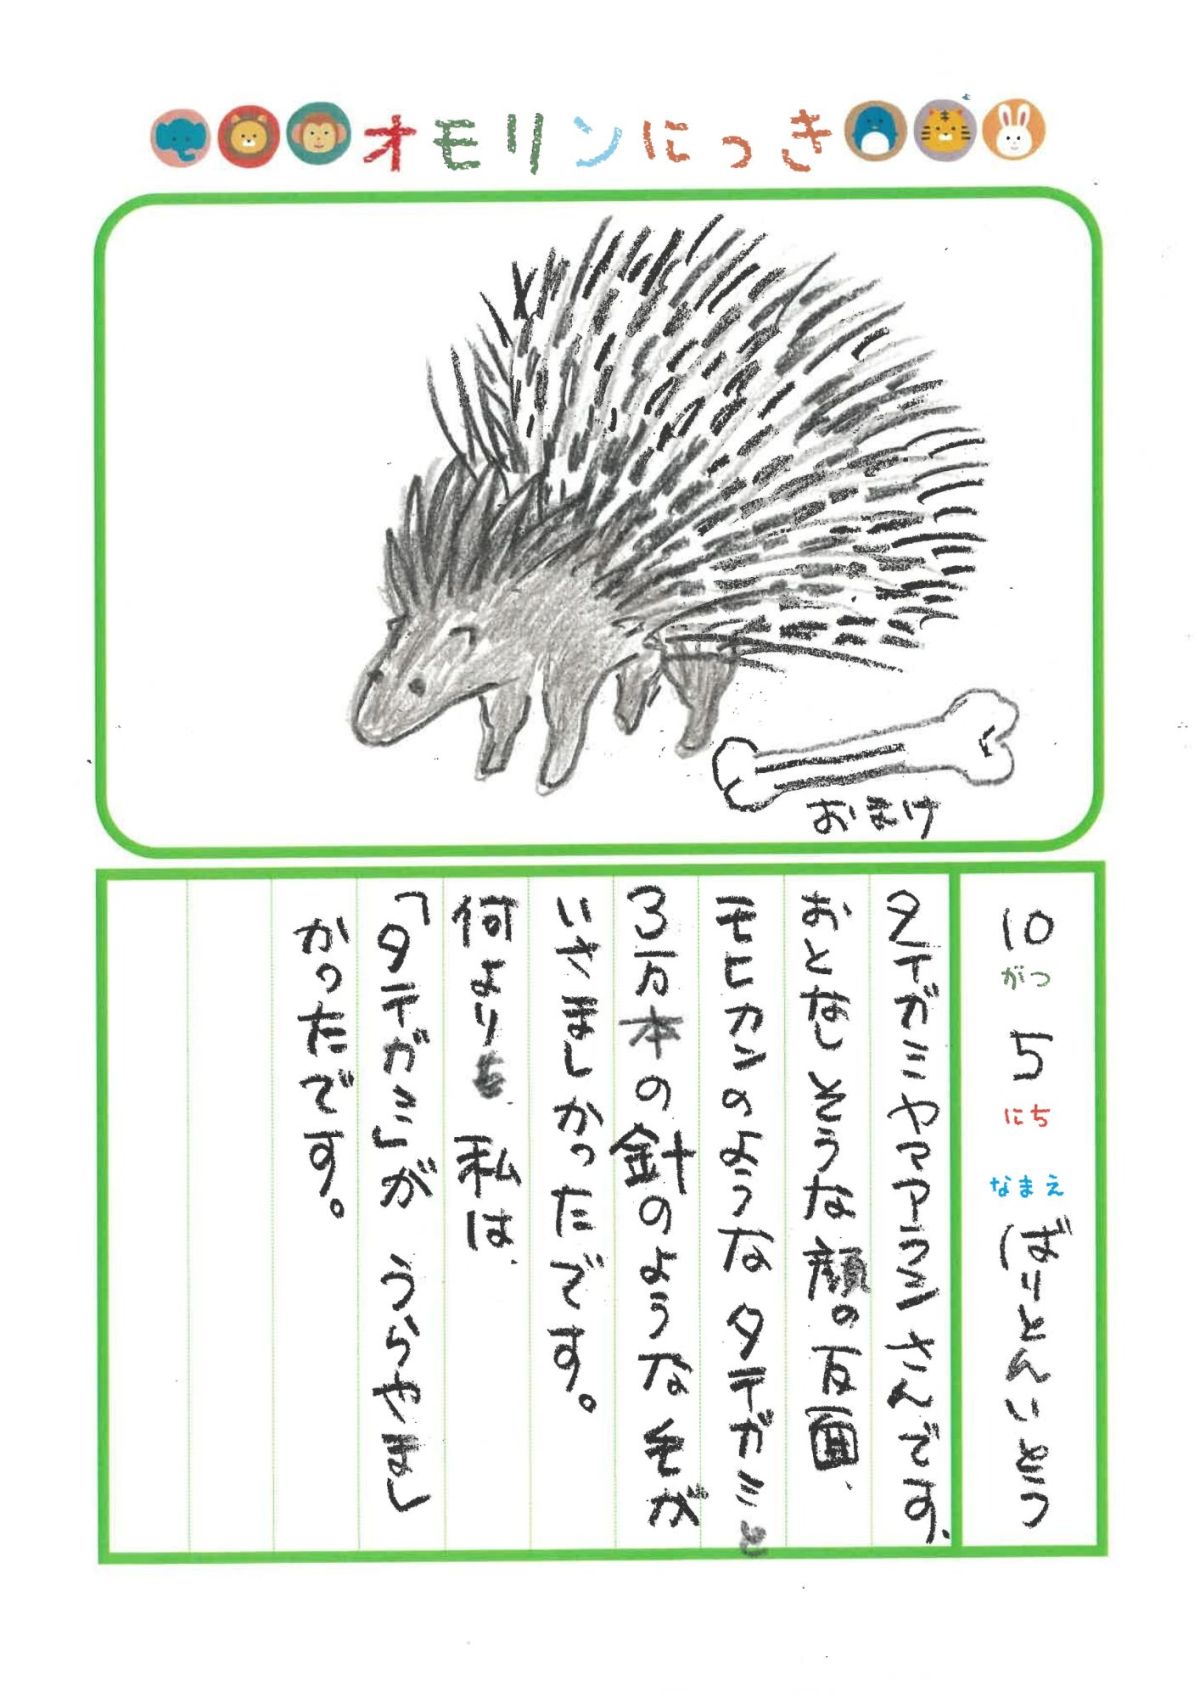 オモリンにっき
おまけ
10がつ5にち なまえ ばりとんいとう
タテガミヤマアラシさんです、
おとなしそうな顔の反面、
モヒカンのようなタテガミと
3万本の針のような毛が
いさましかったです。
何よりも 私は、
「タテガミ」が うらやまし
かったです。